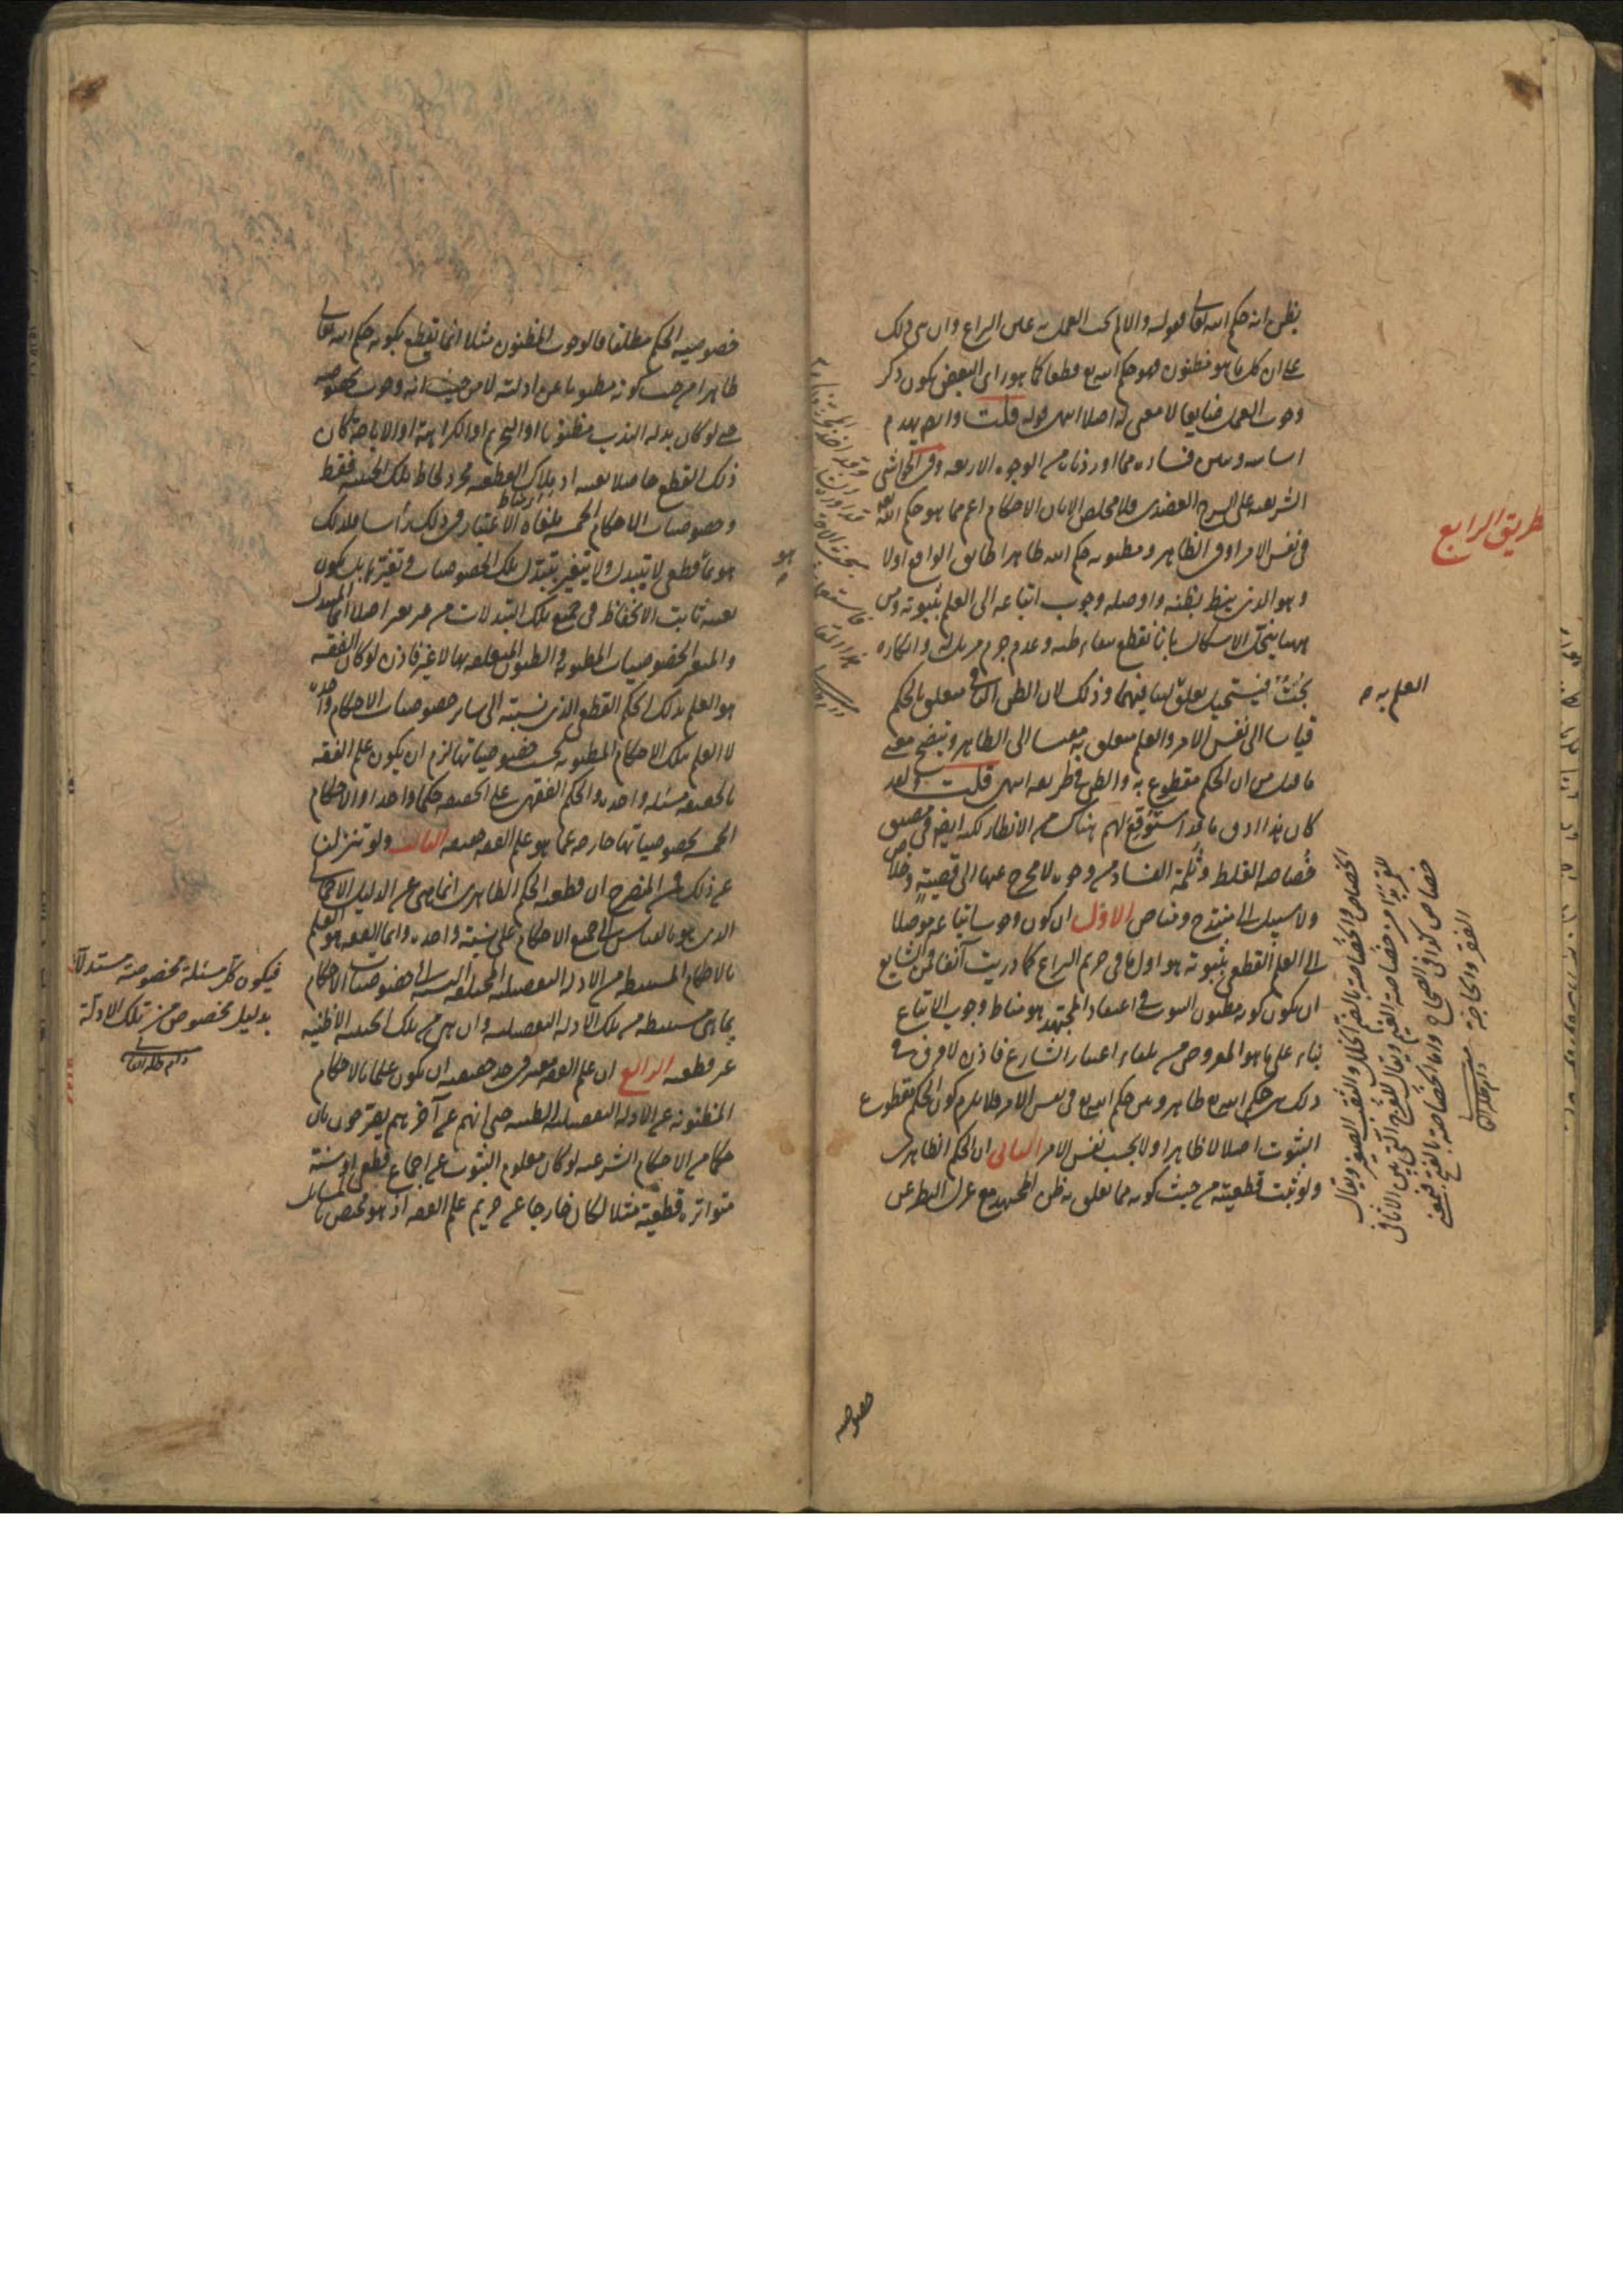 يظن انه حكم الله تعالى فقوله والا لم يجب العمل به عين النزاع وان بنى ذلك
على ان كل ما هو مظنون فهو حكم الله تع قطعا كما هو راى البعض يكون ذكر
وجوب العمل ضايعا لا معنى له اصلا انتهى قوله قلت
اساسه وبين فساده مما اوردناه من الوجوه الاربعة وفى الحواشى
الشريفية على الشرح العضدى فلا مخلص الا بان الاحكام اعم مما هو حكم الله
فى نفس الامر او فى الظاهر ومظنونه حكم الله ظاهرا طابق الواقع اولا
وهو الذى نيط بظنه واوصله وجوب اتباعه الى العلم بثبوته ومن
ههنا ينحل الاشكال بانا نقطع ببقاء ظنه وعدم جزم مزيل له وانكاره
بهت فيستحيل تعلق العلم به لتنافيهما وذلك لان الظن الباقى متعلق بالحكم
قياسا الى نفس الامر والعلم متعلق به مقيسا الى الظاهر ويتضح معنى
ما قيل من ان الحكم مقطوع به والظن فى طريقه انتهى قلت ولقد
كان هذا ادق ما قد استوقع لهم هناك من الانظار لكنه ايضا فى مضيق
خصاصة الغلط وثلمة الفساد من وجوه لا مخرج عنها الى قصية وخلاص
ولا سبيل الى منتدح ومناص الاول ان كون وجوب اتباعه موصلا
الى العلم القطعى بثبوته هو اول ما فى حريم النزاع كما دريت آنفا فمن الشايع
ان يكون كونه مظنون الثبوت فى اعتقاد المجتهد هو مناط وجوب الاتباع
بناء على ما هو المعروض من بلغاء اعتبار الشارع فاذن لا فرق فى
ذلك بين حكم الله تع ظاهرا وبين حكم الله تع فى نفس الامر فلا يلزم كون الحكم مقطوع
الثبوت اصلا لا ظاهرا ولا بحسب نفس الامر الثانى ان الحكم الظاهرى
ولو ثبت قطعيته من حيث كونه مما تعلق به ظن المجتهد مع عزل النظر عن
طريق الرابع
العلم به صح
الخصاص والخصاصة بالفتح الخلل والثقب الصغير ويقال
للقمر بدا من خصاصة الغيم ويقال للفرج التى بين الاثافى
خصاص كذا فى الصحاح واما الخصاصة بالفتح فبمعنى
الفقر والحاجة منه
دام ظله العالى
خصوصية
خصوصية الحكم مطلقا فالوجوب المظنون مثلا انما يقطع بكونه حكم الله تعالى
ظاهرا من حيث كونه مظنونا عن ادلته لا من حيث انه وجوب بخصوصه
حتى لو كان بدله الندب مظنونا او التحريم او الكراهة او الاباحة كان
ذلك القطع حاصلا بعينه اذ ملاك القطعية مجرد لحاظ تلك الحيثية فقط
وخصوصيات الاحكام الخمسة ملغاة الاعتبار فى ذلك رأسا فلذلك
هو ثمة قطعى لا يتبدل ولا يتغير بتبدل تلك الخصوصيات وتغيرها بل يكون
بعينه ثابت الانحفاظ فى جميع تلك التبدلات من غير تغير اصلا انما المتبدل
والمتغير الخصوصيات المظنونة والظنون المتعلقة بها لا غير فاذن لو كان الفقه
هو العلم بذلك الحكم القطعى الذى نسبته الى ساير خصوصيات الاحكام واحدة
لا العلم بتلك الاحكام المظنونة بحسب خصوصياتها لزم ان يكون علم الفقه
بالحقيقة مسئلة واحدة والحكم الفقهى على الحقيقة حكما واحدا والاحكام
الخمسة بخصوصياتها خارجة عما هو علم الفقه حقيقة الثالث ولو تنزلنا
عن ذلك فمن المنصرح ان قطعية الحكم الظاهرى انما هى عن الدليل الاجمالى
الذى هو بالقياس الى جميع الاحكام على نسبة واحدة وانما الفقه هو العلم
بالاحكام المستنبطة من الادلة التفصيلية المختلفة النسبة الى خصوصيات الاحكام
بما هى مستنبطة من تلك الادلة التفصيلية وان هى من تلك الحيثية الا ظنية
غير قطعية الرابع ان علم الفقه معتبر فى حد حقيقته ان يكون علما بالاحكام
المظنونة عن الادلة التفصيلية الظنية حتى انهم عن آخرهم يصرحون بان
حكما من الاحكام الشرعية لو كان معلوم الثبوت عن اجماع قطعى او سنة
متواترة قطعية مثلا لكان خارجا عن حريم علم الفقه اذ هو مختص بالمسائل
هو صح
فيكون كل مسئلة مخصوصة مستدلا
بدليل مخصوص من تلك الادلة
دام ظله العالى